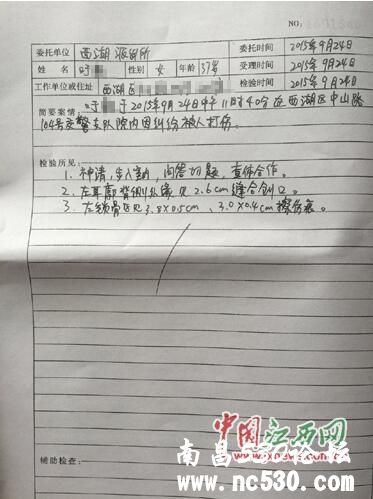 NO:
委托单位 西湖派出所 委托时间 2015年9月24日
姓名 叶 性别 女 年龄 37岁 受理时间 2015年9月24日
工作单位或住址 西湖区 检验时间 2015年9月24日
简要案情: 叶 于2015年9月24日中午11时40分在西湖区中山路
104号交警支队院内因纠纷被人打伤。
检验所见:
1. 神清,步入室内,问答切题,查体合作。
2. 左耳廓背侧 见2.6cm缝合创口。
3. 左锁骨区见3.8×0.5cm、3.0×0.4cm擦伤痕。
辅助检查:
中国江西网
www.jxnews.com.cn
南昌
www.nc530.com